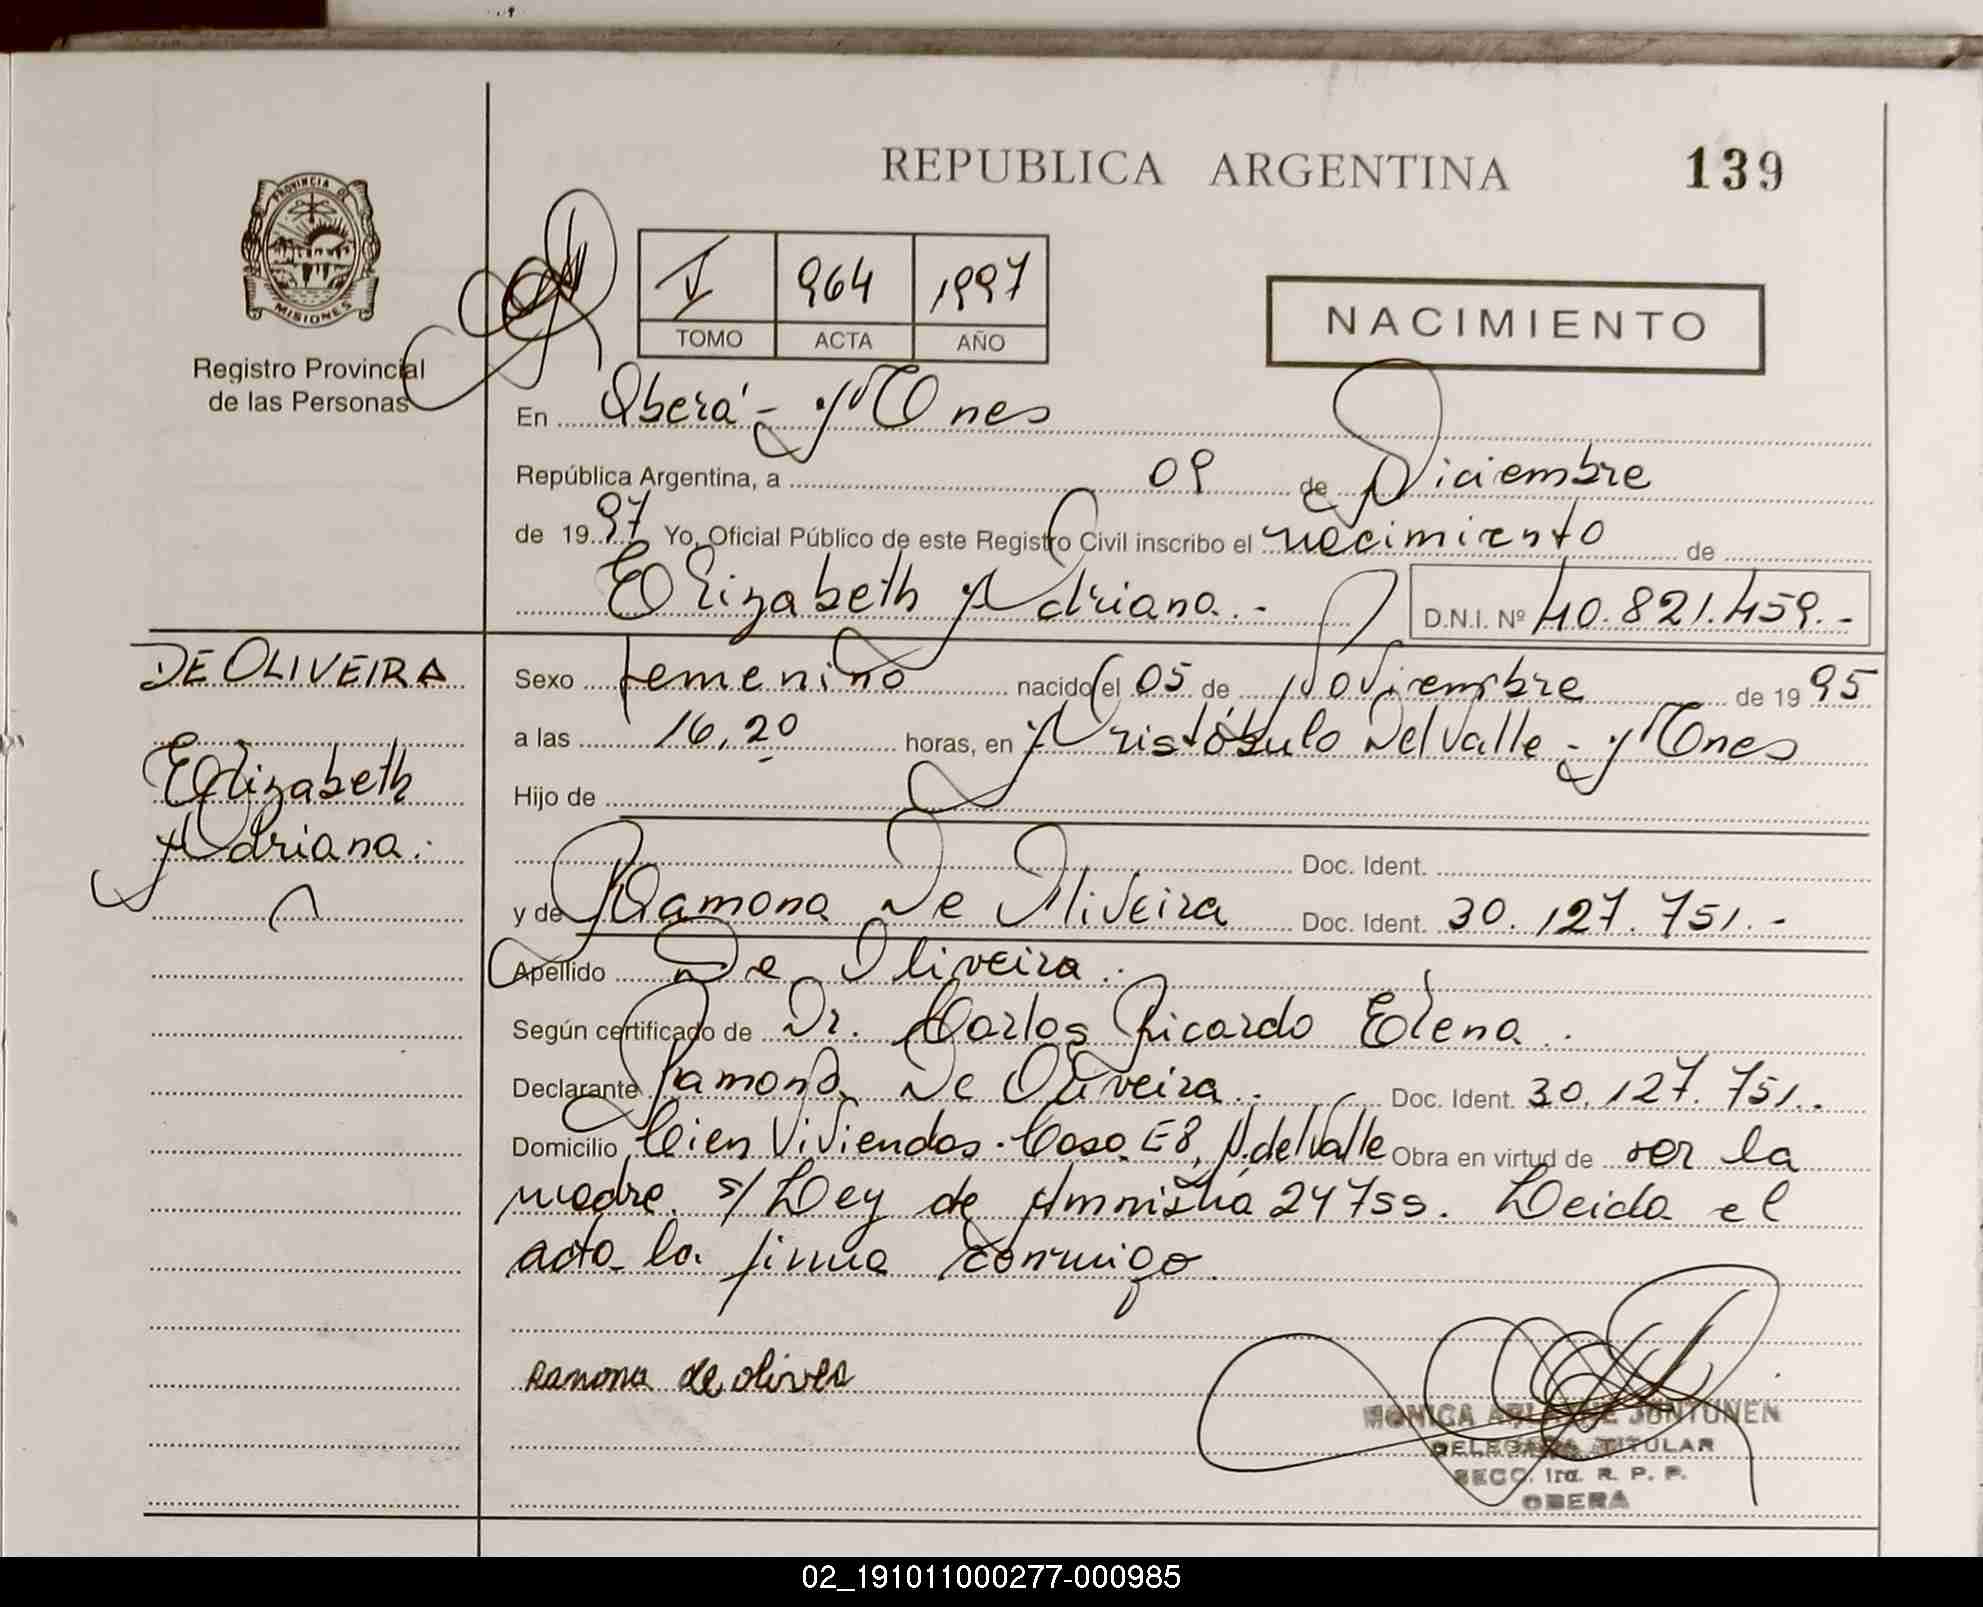 REPUBLICA ARGENTINA 139
PROVINCIA D
MISIONES
Registro Provincial
de las Personas
V 964 1997
TOMO ACTA AÑO
NACIMIENTO
En Oberá - Mnes
República Argentina, a 09 de Diciembre
de 1997 Yo, Oficial Público de este Registro Civil inscribo el nacimiento de
Elizabeth Adriana.- D.N.I. Nº 40.821.459.-
DE OLIVEIRA
Elizabeth
Adriana.
Sexo femenino nacido el 05 de Noviembre de 1995
a las 16,20 horas, en Aristóbulo Del Valle - Mnes
Hijo de
Doc. Ident.
y de Ramona De Oliveira Doc. Ident. 30.127.751.-
Apellido De Oliveira.
Según certificado de Dr. Carlos Ricardo Elena.
Declarante Ramona De Oliveira.. Doc. Ident. 30.127.751..
Domicilio Cien Viviendas. Casa E8, A. del Valle Obra en virtud de ser la
madre. s/ Ley de Amnistía 24755. Leida el
acta la firma conmigo.
Ramona de olivea
MONICA JUNTUNEN
DELEGADA TITULAR
SECC. 1ra. R. P. P.
OBERA
02_191011000277-000985